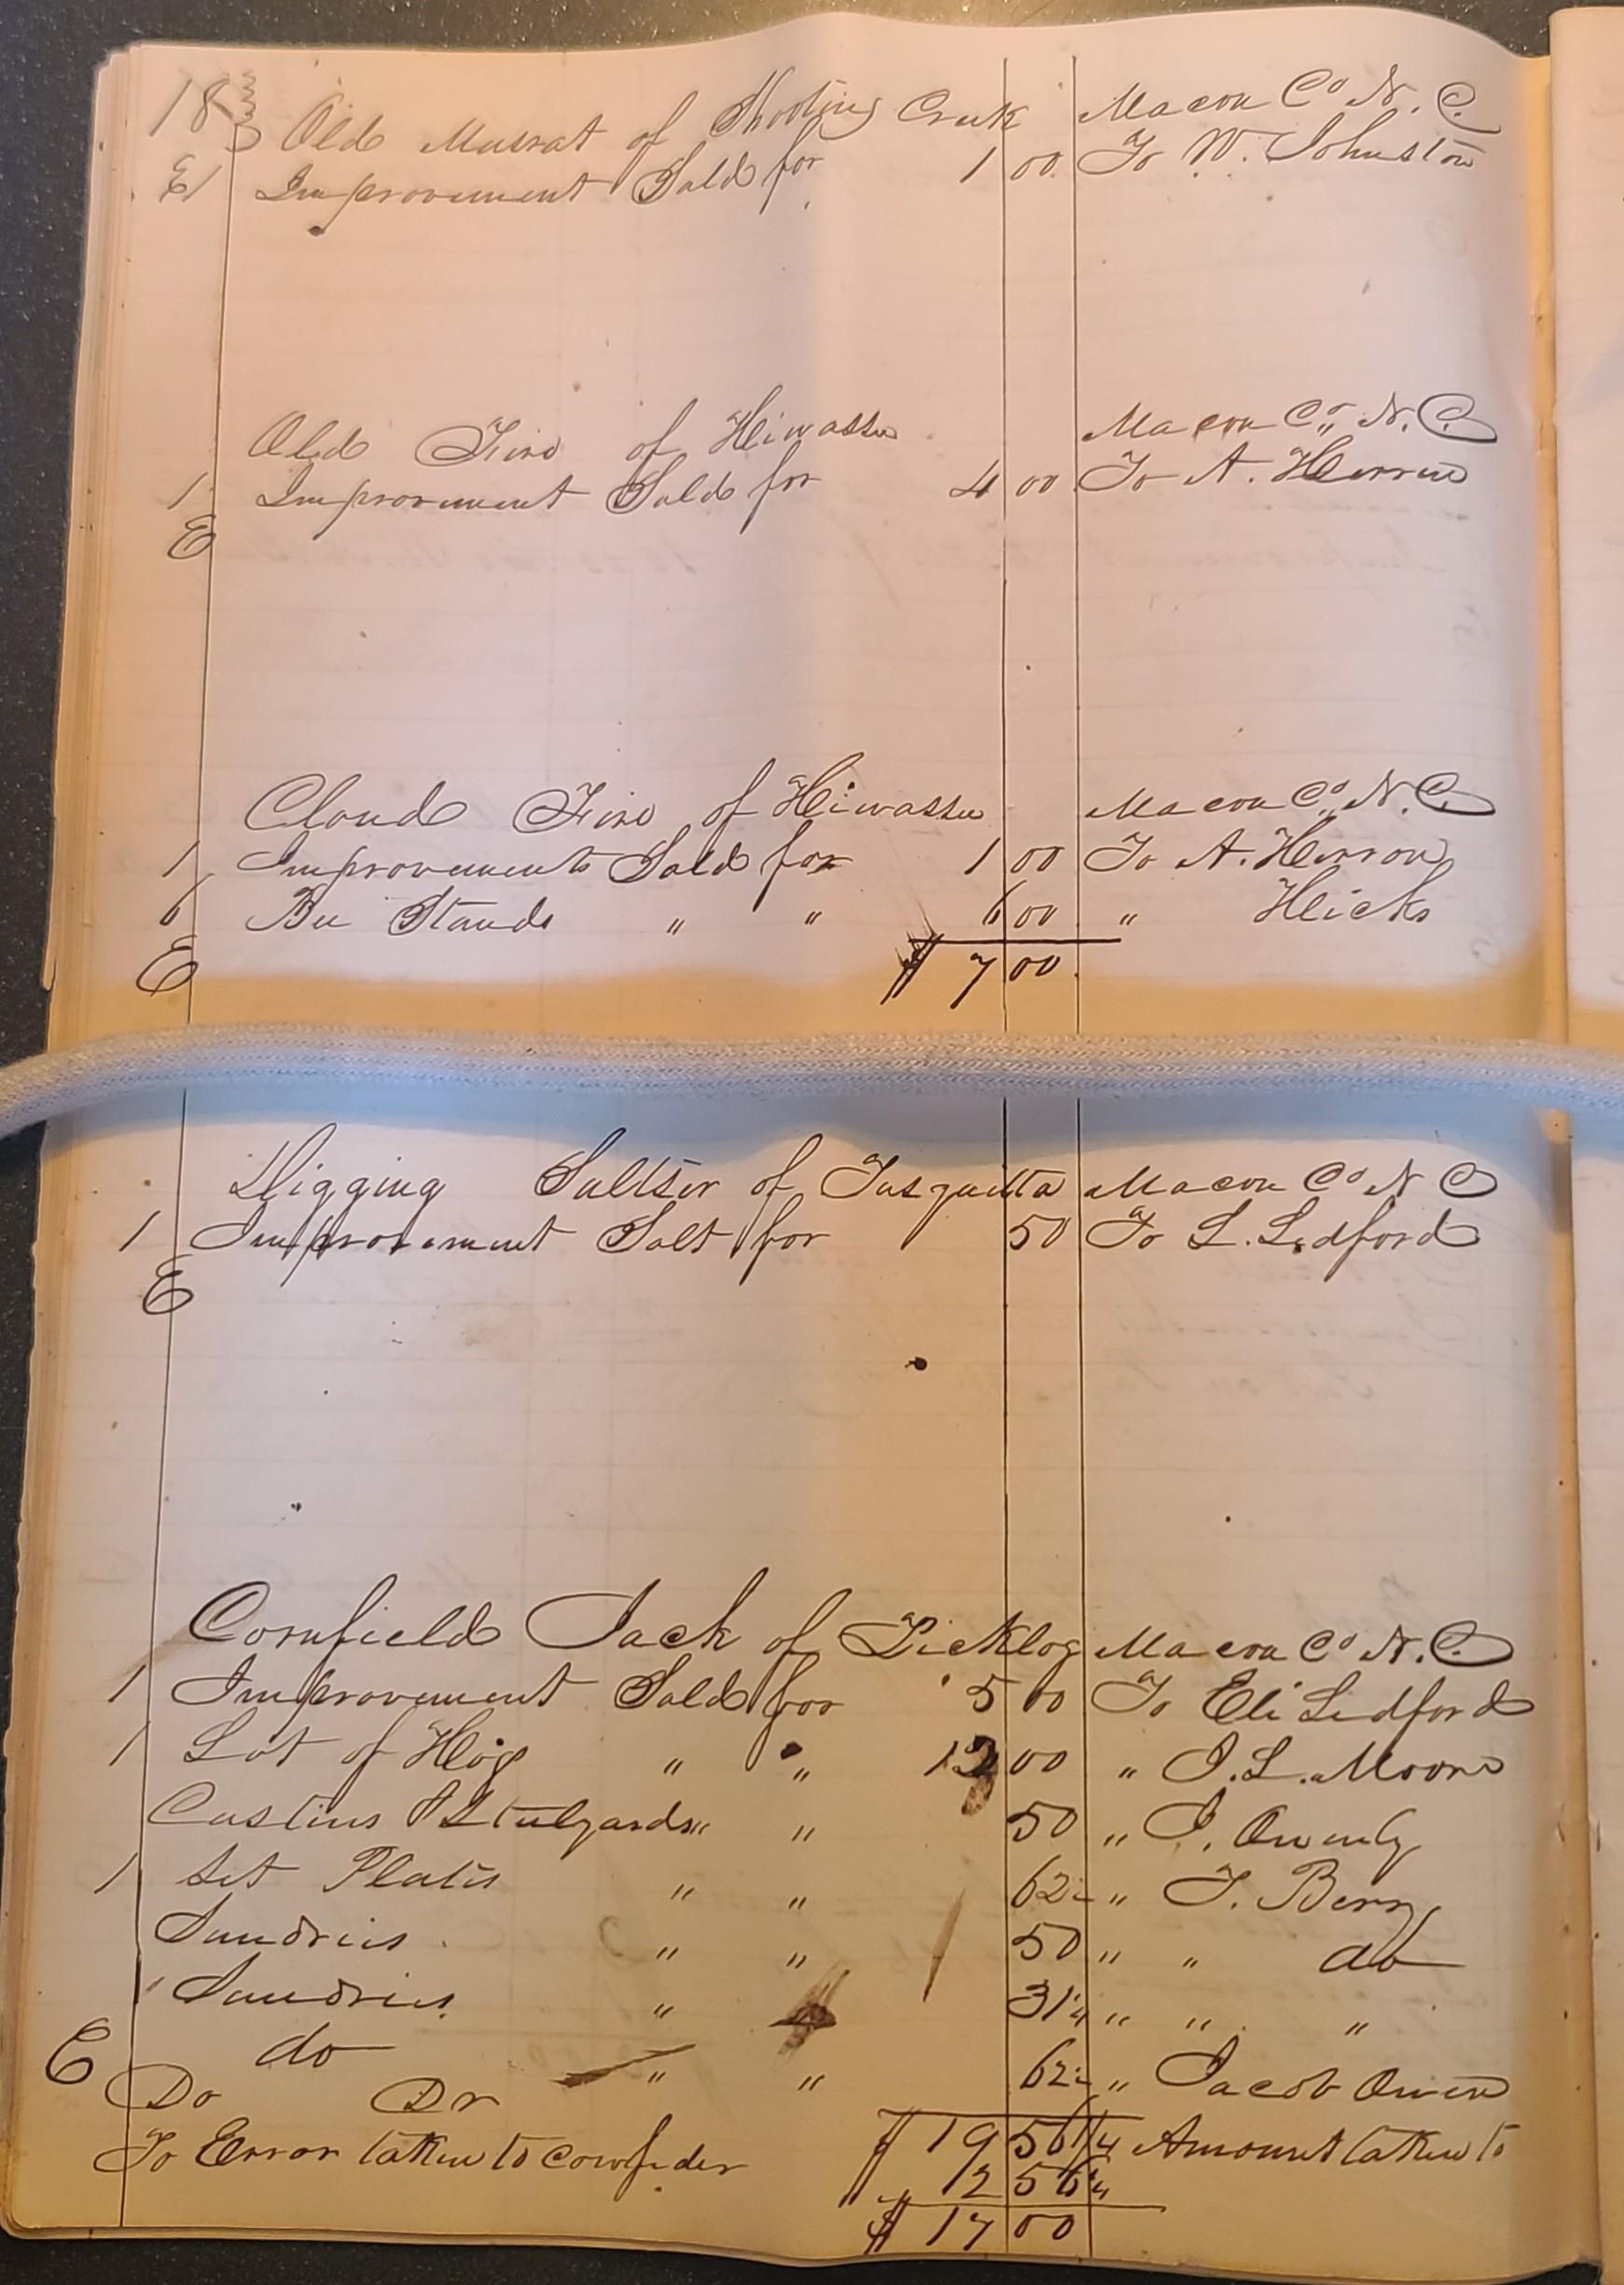 18 Old Musrat of Shooting Creek Macon Co N. C.
E 1 Improvement Sold for 1 00 To W. Johnston
Old Fird of Hiwassee Macon Co,, N. C.
1 Improvement Sold for 4 00 To A. Herren
E
Cloud Fird of Hiwassee Macon Co,, N. C.
1 Improvements Sold for 1 00 To A. Herron
6 Bee Stands " " 6 00 " Hicks
E $ 7 00
Digging Sultser of Tusquitta Macon Co N C
1 Improvement Salt for 50 To L. Ledford
E
Cornfield Jack of Licklog Macon Co N. C.
1 Improvement Sold for 5 00 To Eli Ledford
1 Lot of Hogs " " 12 00 " J. L. Moore
" " 50 " J. Owenby
1 Set Plates " " 62 " T. Berry
Sundries " " 50 " " do
1 Sundries " " 31 1/4 " " "
do " " 62 " Jacob Owen
E
Do Dr $ 19 56 1/4 Amount taken to
To Error taken to 12 56 1/4
$ 17 00